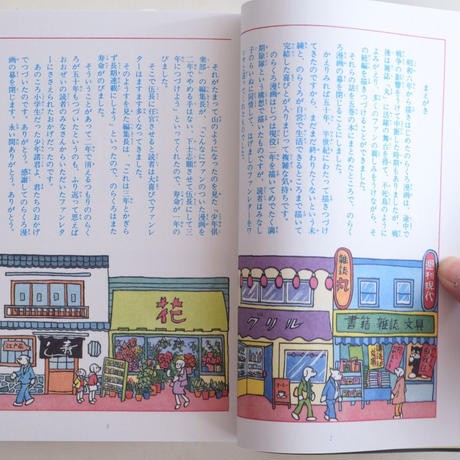 まえがき
昭和六年から描きはじめたのらくろ漫画は、途中で
戦争の影響をうけて中断した時期もありましたが、戦
後は雑誌「丸」に活躍の舞台を得て、不死鳥のように
よみがえり、
の続編を
らの話を五巻の本に
ろ漫画の幕を閉じることにしました。
かえりみれば五十年、半世紀にわたって描きつづけ
てきたのですから、まだまだ終わりたくないという未
練と、のらくろが自営で生活できるところまで描いて
完結した喜びとが入りまじって複雑な気持ちです。
のらくろ漫画はじつは現役一年描いてめでたく満
期除隊という構想で描いたものですが、読者はみなし
子ののらくろに同情して、はげましのファンレターを
それがたまって山のようになったのを見た「少年倶
楽部」の編集長が、「こんなにファンのついた漫画を
一年でやめる手はない、下士志願させて伍長にして三
年につづけよう」といってくれたので、寿命が一年の
びました。
そこで伍長に任官させると読者は大喜びでファンレ
ターはますますふえてきました。
そのようすを見た編集長は「
ず長期連載でいこう」といったので、のらくろはまた
寿命がのびました。
そういうことがあって一年で消えるつもりののらく
ろが五十年もつづいたというのも、ふり返って思えば
おおぜいの読者のみなさんからいただいたファンレタ
ーにささえられたおかげだったのです。
あのころ小学生だった少年諸君よ、君たちのおかげ
でつづいたのです。ありがとう。感謝してのらくろ漫
画の幕を閉じます。永い間ありがとう。ありがとう。
花
グリル
雑誌丸
週刊現代
書籍 雑誌 文具
2